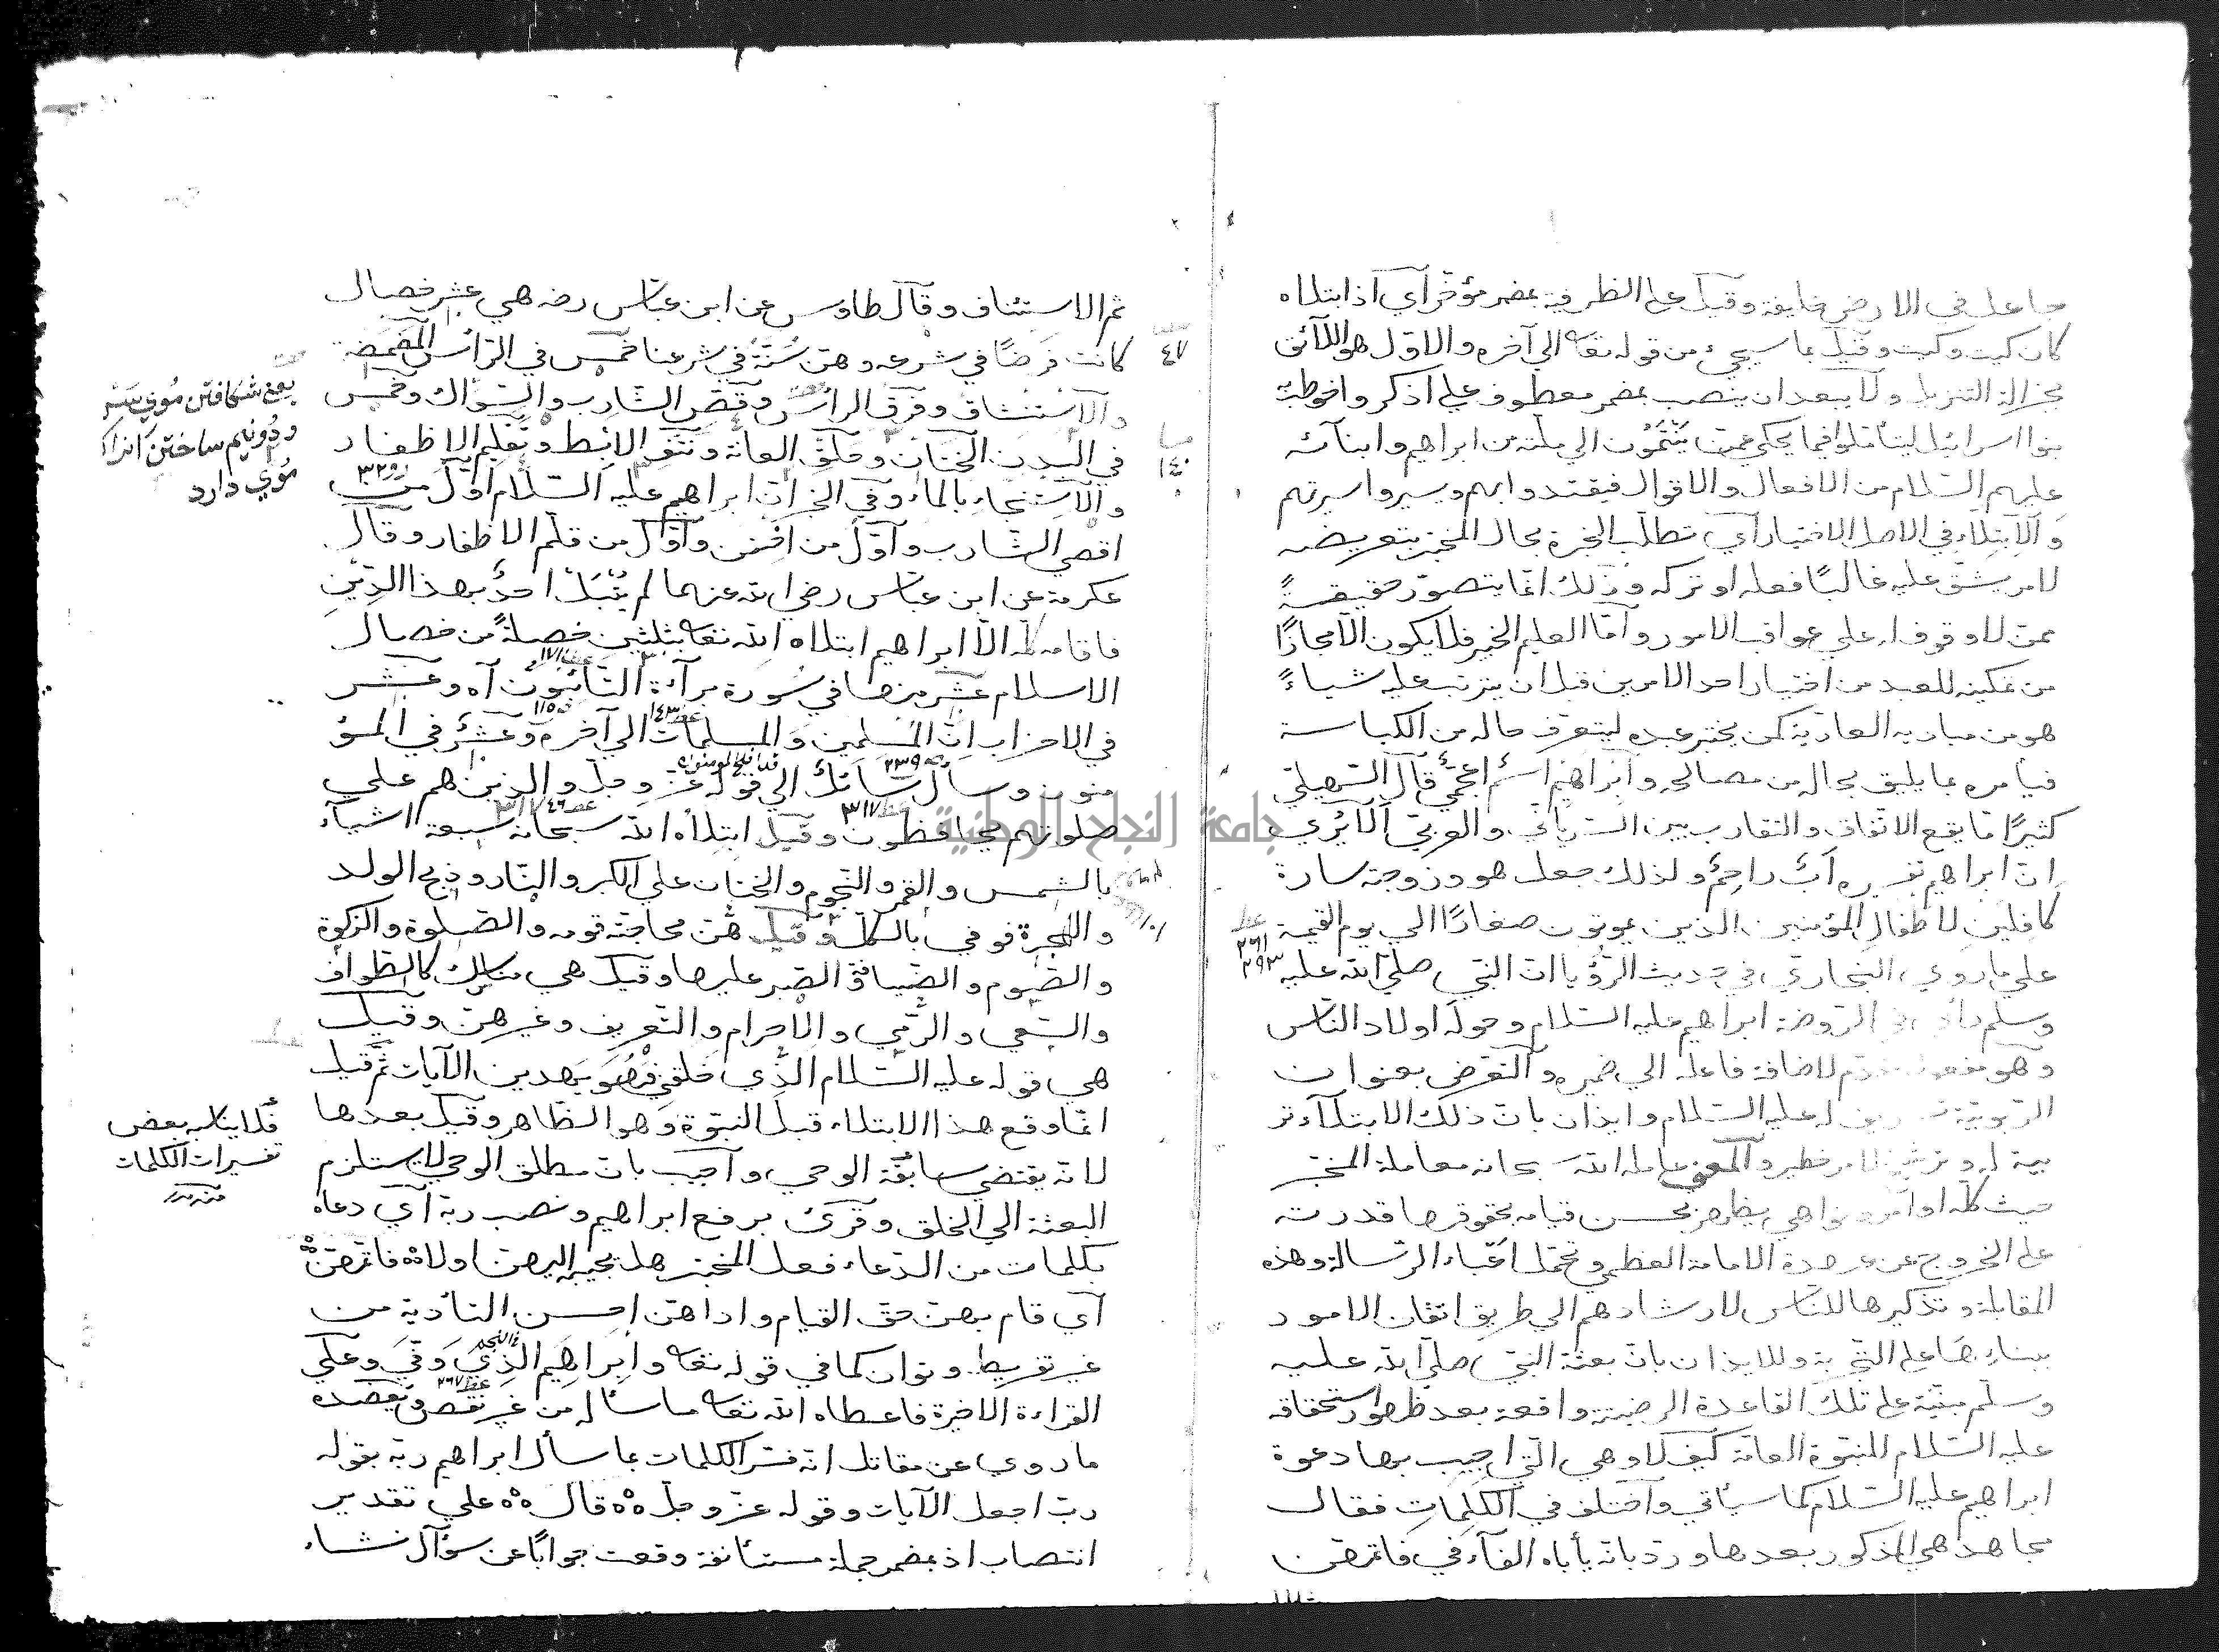 جاعل في الارض خليفة وقيل علي الظرفية بمضمر مؤخر آي اذ ابتلاه
كان كيت وكيت وقيل بما سيجيء من قوله تعه الي آخره والاول هو اللائق
بجزالة التنزيل ولا يبعد ان ينصب بمضمر معطوف علي اذكر واخوطب
بنوا اسرائيل ليتأملوا فيما يحكي عمن ينتمون الي ملته من ابراهيم وابنائه
عليهم السلام من الافعال والاقوال فيقتدوا بهم ويسيروا سيرتهم
والابتلاء في الاصل الاختبار آي تطلب الخبرة بحال المختبر بتعريضه
لامر يشق عليه غالبًا فعله او تركه وذلك انما يتصور حقيقةً
ممن لا وقوف له علي عواقب الامور وآما العليم الخبير فلا يكون الا مجازًا
من تمكينه للعبد من اختيار احد الامرين قبل ان يترتب عليه شياءً
هو من مباديه العادية كمن يختبر عبده ليتعرف حاله من الكياسة
فيأمره بما يليق بحاله من مصالحه وابراهيم اسم اعجمي قال السهيلي
كثيرًا ما يقع الاتفاق والتقارب بين السرياني والعربي الا يري
ان ابراهيم تفسيره اب راحم ولذلك جعل هو وزوجته سارة
كافلين لاطفال المؤمنين الذين يموتون صغارًا الي يوم القيمة
علي ما روي البخاري في حديث الرؤيا ان النبي صلي الله عليه
وسلم رأي في الروضة ابراهيم عليه السلام وحوله اولاد الناس
وهو مفعول مقدم لاضافة فاعله الي ضميره والتعرض بعنوان
الربوبية تشريف له عليه السلام وايذان بان ذلك الابتلاء تر
بية له وترشيح لامر خطير والمعني عامله الله سبحانه معاملة المختبر
حيث كلفه اوامر ونواهي يظهر بحسن قيامه بحقوقها قدرته
علي الخروج عن عهدة الامامة العظمي وتحمل اعباء الرسالة وهذه
المقابلة وتذكيرها للناس لارشادهم الي طريق اتقان الامور
ببنائها علي التجربة وللايذان بان بعثة النبي صلي الله عليه
وسلم مبنية علي تلك القاعدة الرضية واقعة بعد ظهور استحقاقه
عليه السلام للنبوة العامة كيف لا وهي التي اجيب بها دعوة
ابراهيم عليه السلام كما سيأتي واختلف في الكلمات فقال
مجاهد هي المذكور بعدها ورد بانه يأباه الفاء في فاتمهن
عفد
٢٦١
٢٩٣
ثم الاستئناف وقال طاوس عن ابن عباس رضه هي عشر خصال
كانت فرضًا في شرعه وهن سنة في شرعنا خمس في الرأس المضمضة
والاستنشاق وفرق الرأس وقص الشارب والسواك وخمس
في البدن الختان وحلق العانة ونتف الابط وتقليم الاظفار
والاستنجاء بالماء وفي الخبر ان ابراهيم عليه السلام اول من
اقصي الشارب واول من اختتن واول من قلم الاظفار وقال
عكرمة عن ابن عباس رضي الله عنهما لم يُبتل احد بهذا الدين
فاقامه كله الا ابراهيم ابتلاه الله تعه بثلثين خصلة من خصال
الاسلام عشر منها في سورة براءة التائبون آه وعشر
في الاحزاب ان المسلمين والمسلمات الي آخره وعشر في المؤ
منون وسأل سائل الي قوله عز وجل والذين هم علي
صلوتهم يحافظون وقيل ابتلاه الله سبحانه بسبعة اشياء
بالشمس والقمر والنجوم والختان علي الكبر والنار وذبح الولد
والهجرة فوفي بالكل وقيل هن محاجته قومه والصلوة والزكوة
والصوم والضيافة والصبر عليها وقيل هي مناسك كالطواف
والسعي والرمي والاحرام والتعريف وغيرهن وقيل
هي قوله عليه السلام الذي خلقني فهو يهدين الآيات ثم قيل
انما وقع هذا الابتلاء قبل النبوة وهو الظاهر وقيل بعدها
لانه يقتضي سابقة الوحي واجيب بان مطلق الوحي لا يستلزم
البعثة الي الخلق وقرئ برفع ابراهيم ونصب ربه آي دعاه
بكلمات من الدعاء فعل المختبر هل يجيبه اليهن اولا فاتمهن
آي قام بهن حق القيام واداهن احسن التأدية من
غير تفريط وتوان كما في قوله تعه وابراهيم الذي وفي وعلي
القراءة الاخيرة فاعطاه الله تعه ما سأله من غير نقص ويعضده
ما روي عن مقاتل انه فسر الكلمات بما سأل ابراهيم ربه بقوله
رب اجعل الآيات وقوله عز وجل قال علي تقدير
انتصاب اذ بمضمر جملة مستأنفة وقعت جوابًا عن سؤال نشاء
يعني شكافتن موي سر
ودونيم ساختن
موي دارد
فلا يناسبه بعض
تفسيرات الكلمات
٤٧
١٤٠
٣٢٩
١٧١
١٤٣
٢٣٩
٣١٧
قد افلح المؤمنون
في النجم
٢٦٧
جامعة النجاح الوطنية